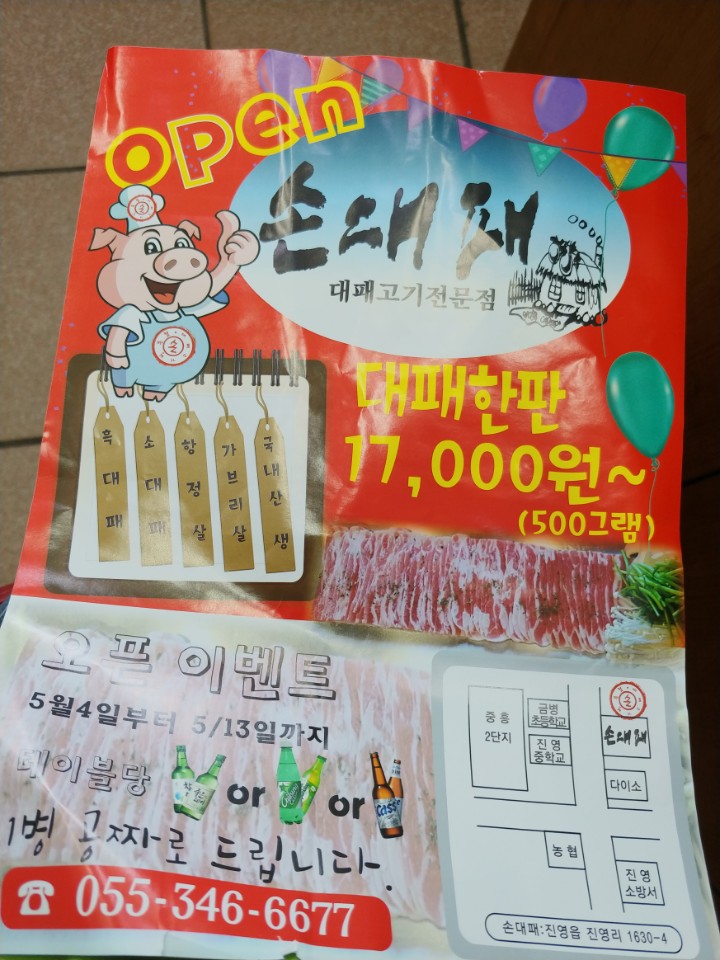 open
손대패
대패고기전문점
대패한판
17,000원~
(500그램)
흑대패
소대패
항정살
가브리살
국내산생
오픈 이벤트
5월4일부터 5/13일까지
테이블당 or or
Cass
1병 공짜로 드립니다.
055-346-6677
중흥
2단지
금병
초등학교
진영
중학교
손
손대패
다이소
농협
진영
소방서
손대패:진영읍 진영리 1630-4